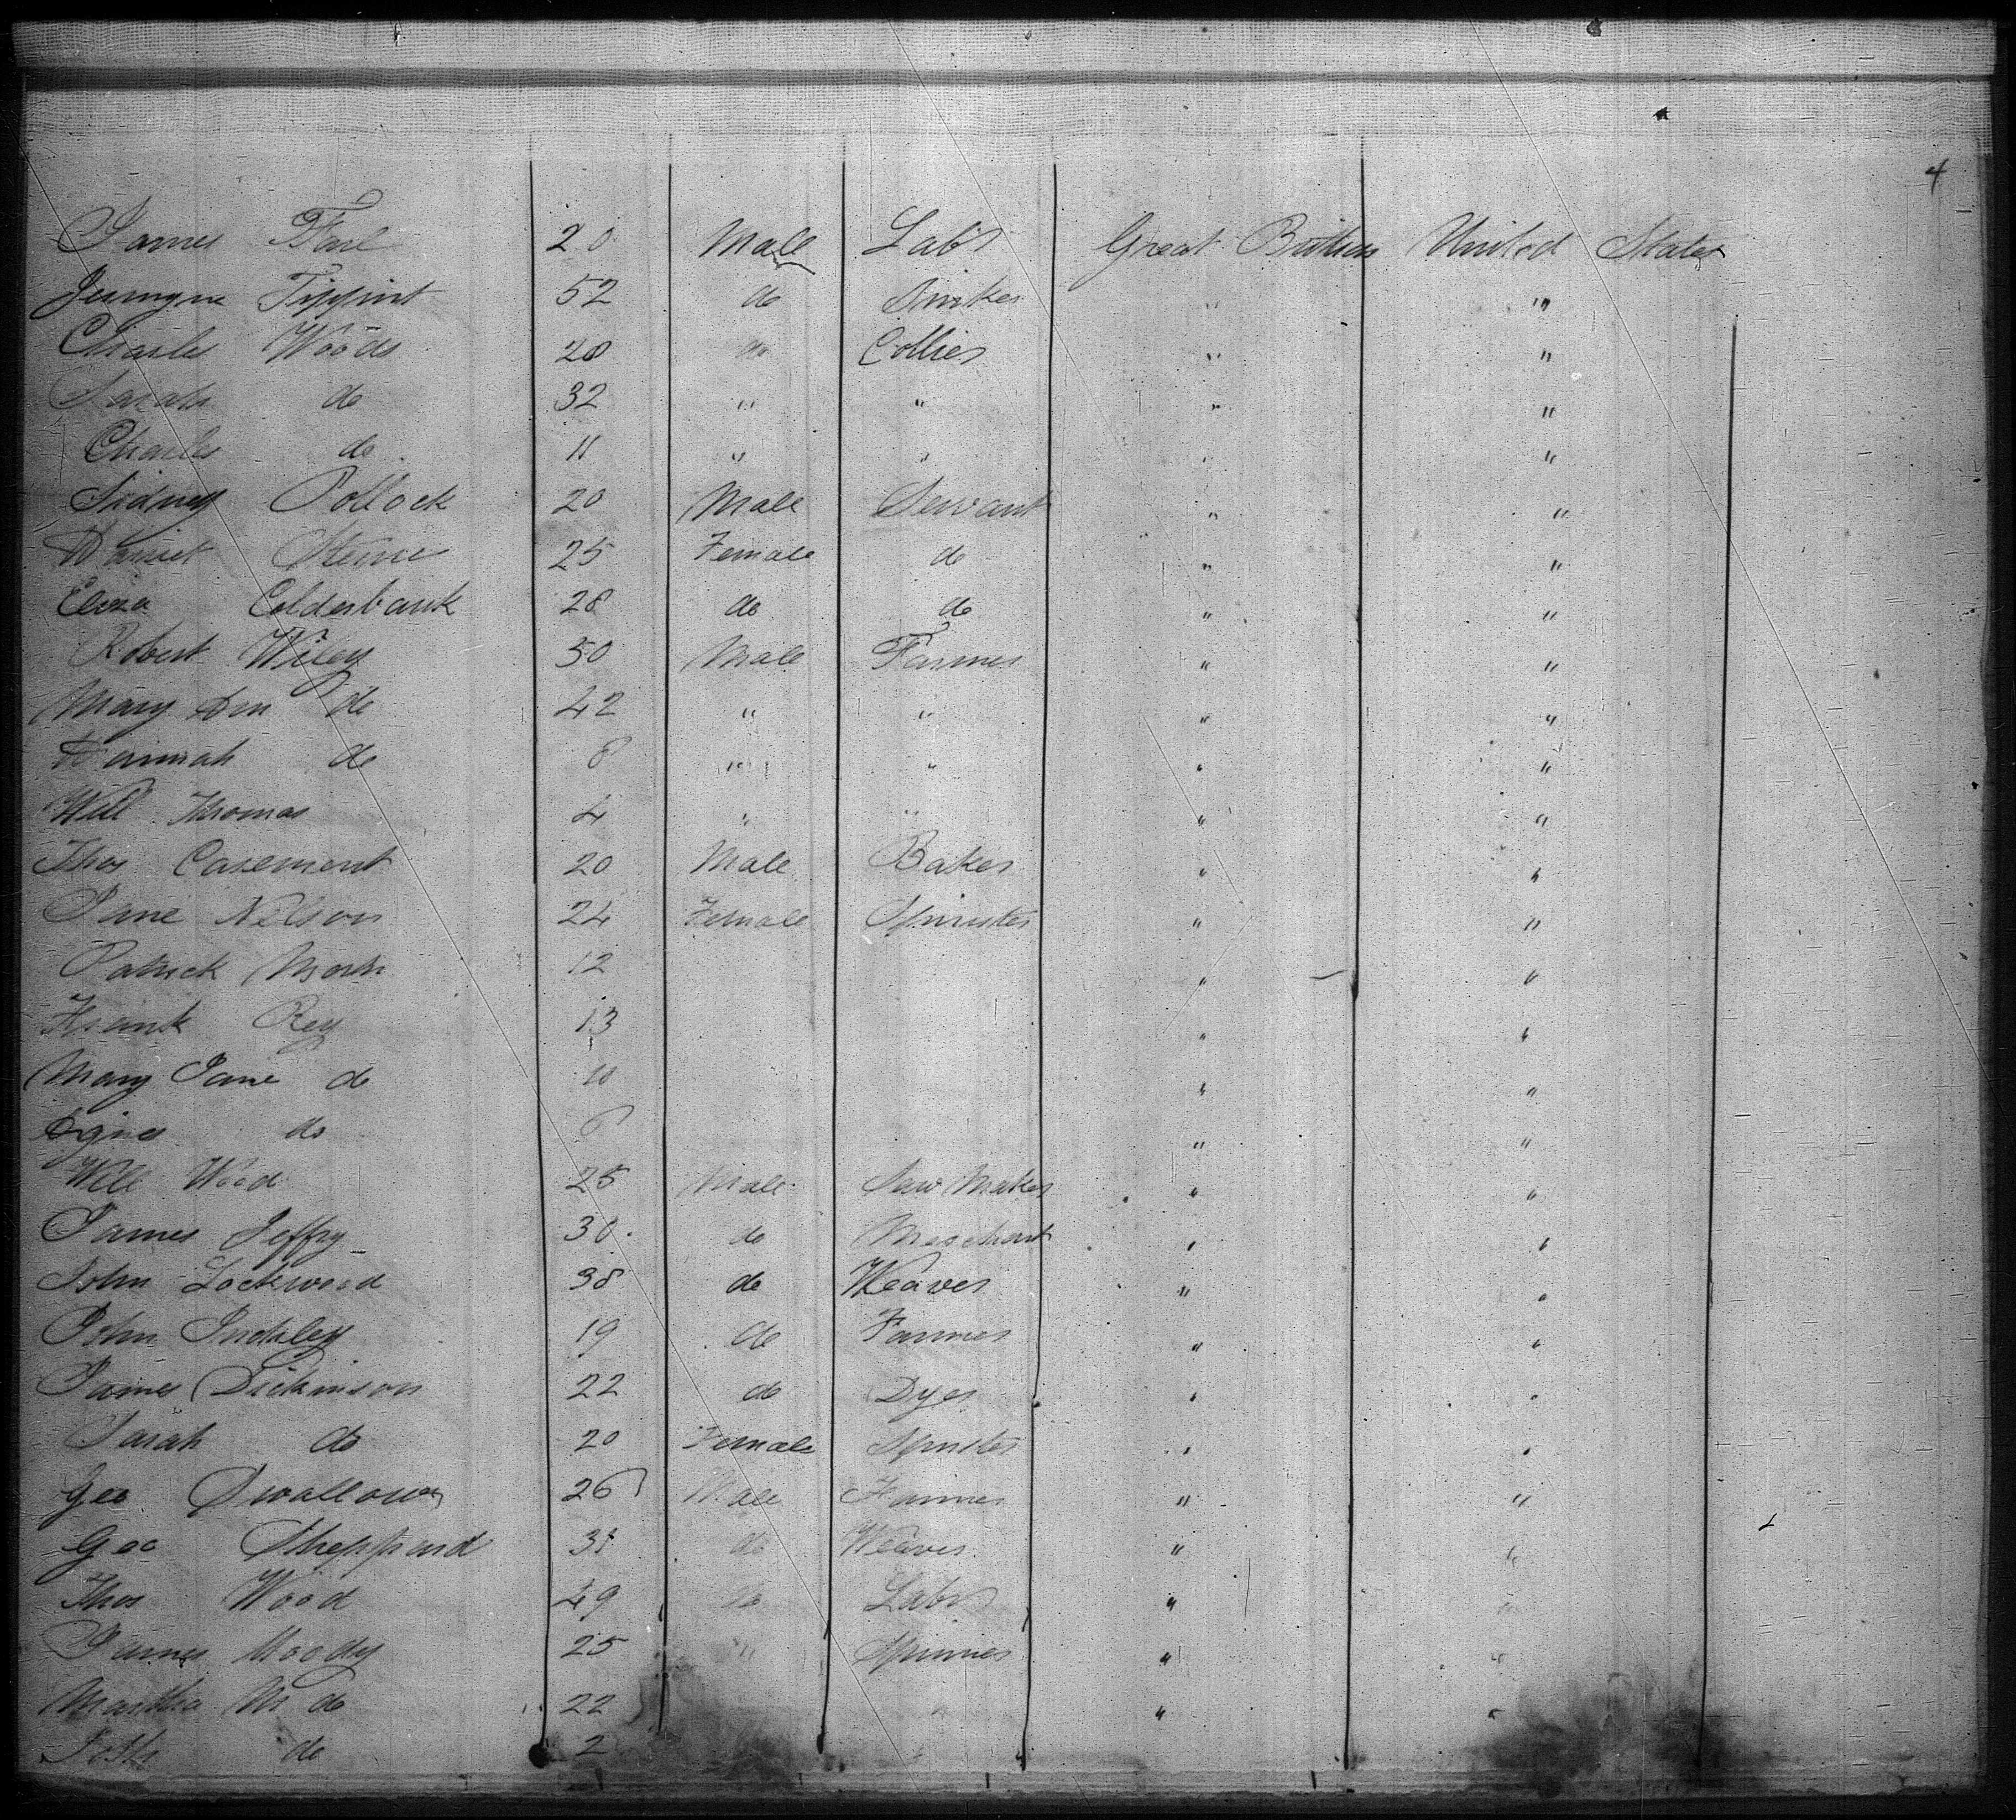 4
James Earl 20 Male Labr Great Britian United States
Tippint 52 do " "
Charles Woods 28 do Collier " "
Sarah do 32 " " " "
Charles do 11 " " " "
Sidney Pollock 20 Male Servant " "
Harriet 25 Female do " "
Eliza Colderbank 28 do do " "
Robert Wiley 50 Male Farmer " "
Mary Ann do 42 " " " "
Hannah do 8 " " " "
Will Thomas 4 " " " "
Thos Casement 20 Male Baker " "
Jane Nelson 24 Female Spinster " "
Patrick 12 " "
Frank Rey 13 " "
Mary Jane do 10 " "
Agnes do 6 " "
Will Wood 25 Male Saw Maker " "
James Jeffry 30 do Merchant " "
John Lockwood 38 do Weaver " "
John Inchley 19 do Farmer " "
James Dickinson 22 do Dyer " "
Sarah do 20 Female Spinster " "
Geo Swallow 26 Male Farmer " "
Geo Sheppard 31 do Weaver " "
Thos Wood 49 do Labr " "
James Moody 25 " Spinner " "
Martha M do 22 " " "
do 2